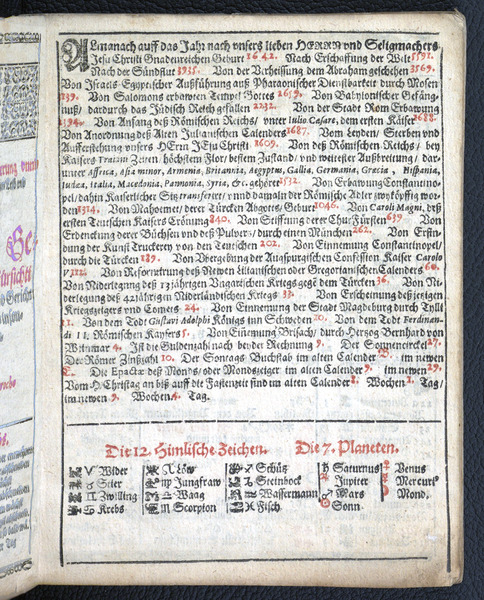 ALmanach auff das Jahr nach unsers lieben HERRN und Seligmachers
Jesu Christi Gnadenreichen Geburt 1642. Nach Erschaffung der Welt 5591.
Nach der Sündflut 3935. Von der Verheissung dem Abraham geschehen 3569.
Von Israels Egyptischer Außführung auß Pharaonischer Dienstbarkeit durch Mosen
Von Salomons erbawten Tempel Gottes 2659. Von Babylonischer Gefäng-
nuß/ dardurch das Jüdisch Reich gefallen 2232. Von der Stadt Rom Erbawung
2394. Von Anfang deß Römischen Reichs/ unter Julio Cæsare, dem ersten Käiser 1688.
Von Anordnung deß Alten Julianischen Calenders 1687. Vom Leyden/ Sterben und
Aufferstehung unsers HErrn JEsu Christi 1609. Von deß Römischen Reichs/ bey
Kaisers Traiani Zeiten/ höchstem Flor/ bestem Zustand/ und weitester Außbreitung/ dar-
unter Affrica, Asia minor, Armenia, Britannia, Ægyptus, Gallia, Germania, Græcia, Hispania,
Iudæa, Italia, Macedonia, Pannonia, Syria, &c. gehöret 1532. Von Erbawung Constantino-
pel/ dahin Kaiserlicher Sitz transferiert/ und damaln der Römische Adler zweyköpffig wor-
den 1314. Von Mahomet/ derer Türcken Abgotts/ Geburt 1046. Von Caroli Magni, deß
ersten Teutschen Kaisers Crönung 840. Von Stifftung derer Chur Fürsten 639. Von
Erdenckung derer Büchsen und deß Pulvers/ durch einen München 262. Von Erfin-
dung der Kunst Truckerey von den Teutschen 202. Von Einnemung Constantinopel/
durch die Türcken 189. Von Ubergebung der Augspurgischen Confession Kaiser Carolo
V. 112. Von Reformirung deß Newen Lilianischen oder Gregorianischen Calenders 60.
Von Niderlegung deß 13jährigen Ungarischen Kriegs gegē dem Türcken 36. Von Ni-
derlegung deß 42jährigen Niderländischen Krieges 33. Von Erscheinung deß jetzigen
Kriegszeigers und Comets 24. Von Einnemung der Stadt Magdeburg durch Tylli
11. Von dem Tod Gustavi Adolphi Königs inn Schweden 10. Von dem Todt Ferdinan-
di II. Römischen Kaysers 5. Von Einnemung Brisach/ durch Hertzog Bernhard von
Weinmar 4. Ist die Guldenzahl nach beyder Rechnung 9. Der Sonnencirckel 27.
Der Römer Zinßzahl 10. Der Sontags Buchstab im alten Calender B. im newen
E. Die Epacta deß Monds/ oder Mondszeiger im alten Calender 9. im newen 29.
Vom H. Christag an biß auff die Fastenzeit sind im alten Calender 8. Wochen 2. Tag/
im newen 9. Wochen 4. Tag.
Die 12. Himlische Zeichen. Die 7. Planeten.
♈ Wider ♌ Löw ♐ Schütz ♄ Saturnus ♀ Venus
♉ Stier ♍ Jungfraw ♑ Steinbock ♃ Jupiter ☿ Mercuri⁹
♊ Zwilling ♎ Waag ♒ Wassermann ♂ Mars ☽ Mond.
♋ Krebs ♏ Scorpion ♓ Fisch ☉ Sonn